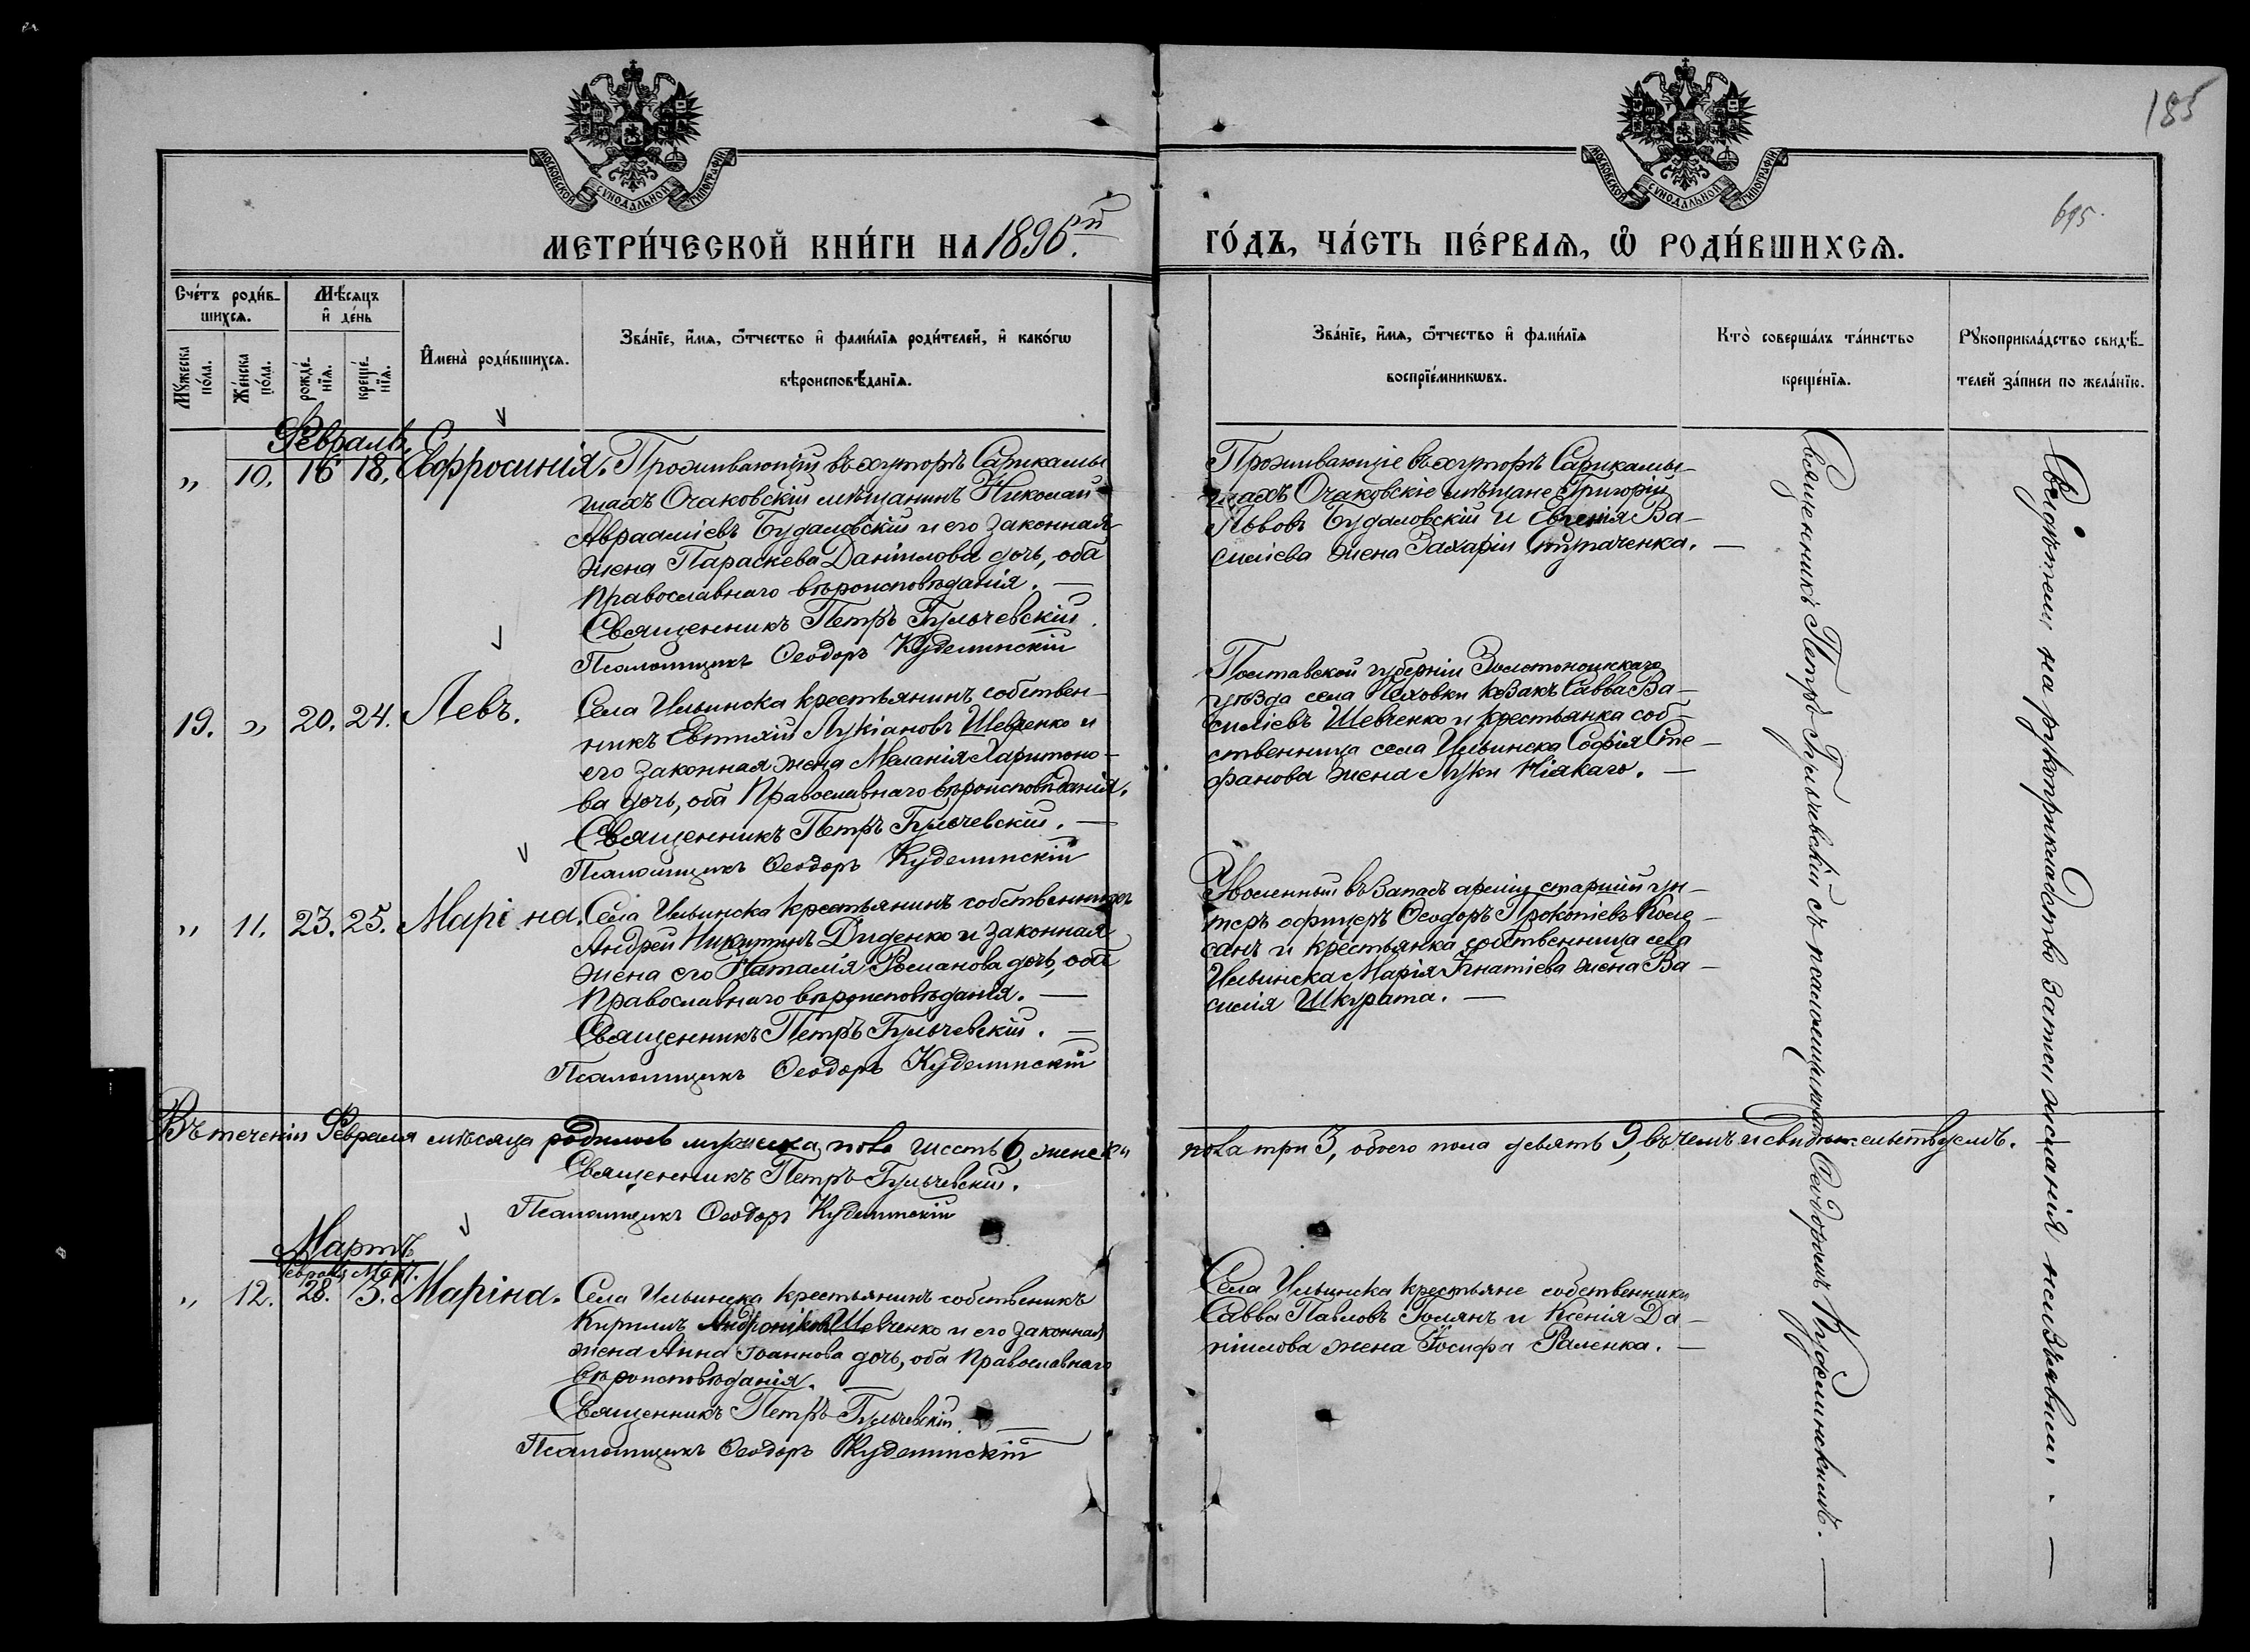 185
695.
МОСКОВСКОЙ СУНОДАЛЬНОЙ ТИПОГРАФІИ
МОСКОВСКОЙ СУНОДАЛЬНОЙ ТИПОГРАФІИ
МЕТРИ́ЧЕСКОЙ КНИ́ГИ НА 1896.й
ГО́ДЪ, ЧА́СТЬ ПЕ́РВАѦ, Ѡ҆ РОДИ́ВШИХСѦ.
Сче́тъ роди́в-
шихсѧ.
Мꙋ́жеска по́ла.
Же́нска по́ла.
Мѣ́сѧцъ
и҆ де́нь
рожде́-
нїѧ.
креще́-
нїѧ.
И҆мена̀ роди́вшихсѧ.
Зва́нїе, и҆́мѧ, ѻ҆́тчество и҆ фами́лїѧ роди́телей, и҆ како́гѡ
вѣроисповѣ́данїѧ.
Зва́нїе, и҆́мѧ, ѻ҆́тчество и҆ фами́лїѧ
воспрїе́мникѡвъ.
Кто̀ соверша́лъ та́инство
креще́нїѧ.
Рꙋкоприкла́дство свидѣ́-
телей за́писи по жела́нїю.
Февраль
" 10. 16 18. Евфросинія. Проживающій въ хуторѣ Сарикамы-
шахъ Очаковскій мѣщанинъ Николай
Авраамиевъ Будаловскій и его законная
жена Параскева Даніилова дочь, оба
Православнаго вѣроисповѣданія. —
Священникъ Петръ Бульчевскій.
Псаломщикъ Ѳеодоръ Куделинскій
Проживающіе въ хуторѣ Сарикамы-
шахъ Очаковскіе мѣщане Григорій
Львовъ Будаловскій и Евгенія Ва-
силіева жена Захаріи —
19. " 20. 24. Левъ. Села Ильинска крестьянинъ собствен-
никъ Евтихій Лукіановъ Шевченко и
его законная жена Меланія Харитоно-
ва дочь, оба Православнаго вѣроисповѣданія.
Священникъ Петръ Бульчевскій. —
Псаломщикъ Ѳеодоръ Куделинскій
Полтавской губерніи Золотоношскаго
уѣзда села козакъ Савва Ва-
силіевъ Шевченко и крестьянка соб-
ственница села Ильинска Софія Сте-
фанова жена Луки Ніякаго. —
" 11. 23. 25. Марі на. Села Ильинска крестьянинъ собственникъ
Андрей Никитинъ Диденко и законная
жена его Наталія Романова дочь, оба
Православнаго вѣроисповѣданія. —
Священникъ Петръ Бульчевскій. —
Псаломщикъ Ѳеодоръ Куделинскій
Уволенный въ запасъ арміи старшій ун-
теръ офицеръ Ѳеодоръ Прокопіевъ Коле-
санъ и крестьянка собственница села
Ильинска Марія Игнатіева жена Ва-
силія Шкурата. —
Въ теченіи Февраля мѣсяца родилось мужеска пола шесть 6, женска
пола три 3, обоего пола девять 9, въ чемъ и свидѣтельствуемъ.
Священникъ Петръ Бульчевскій.
Псаломщикъ Ѳеодоръ Куделинскій
Мартъ
Февраля Март.
" 12. 28. 3. Маріна. Села Ильинска крестьянинъ собственникъ
Кириллъ Андрониковъ Шевченко и его законная
жена Анна Іоаннова дочь, оба Православнаго
вѣроисповѣданія. —
Священникъ Петръ Бульчевскій. —
Псаломщикъ Ѳеодоръ Куделинскій
Села Ильинска крестьяне собственники
Савва Павловъ Голянъ и Ксенія Да-
ніилова жена Іосифа Раленка. —
Священникъ Петръ Бульчевскій съ псаломщикомъ Ѳеодоромъ Куделинскимъ. —
Свидѣтели на рукоприкладство записи желанія не изъявили. —